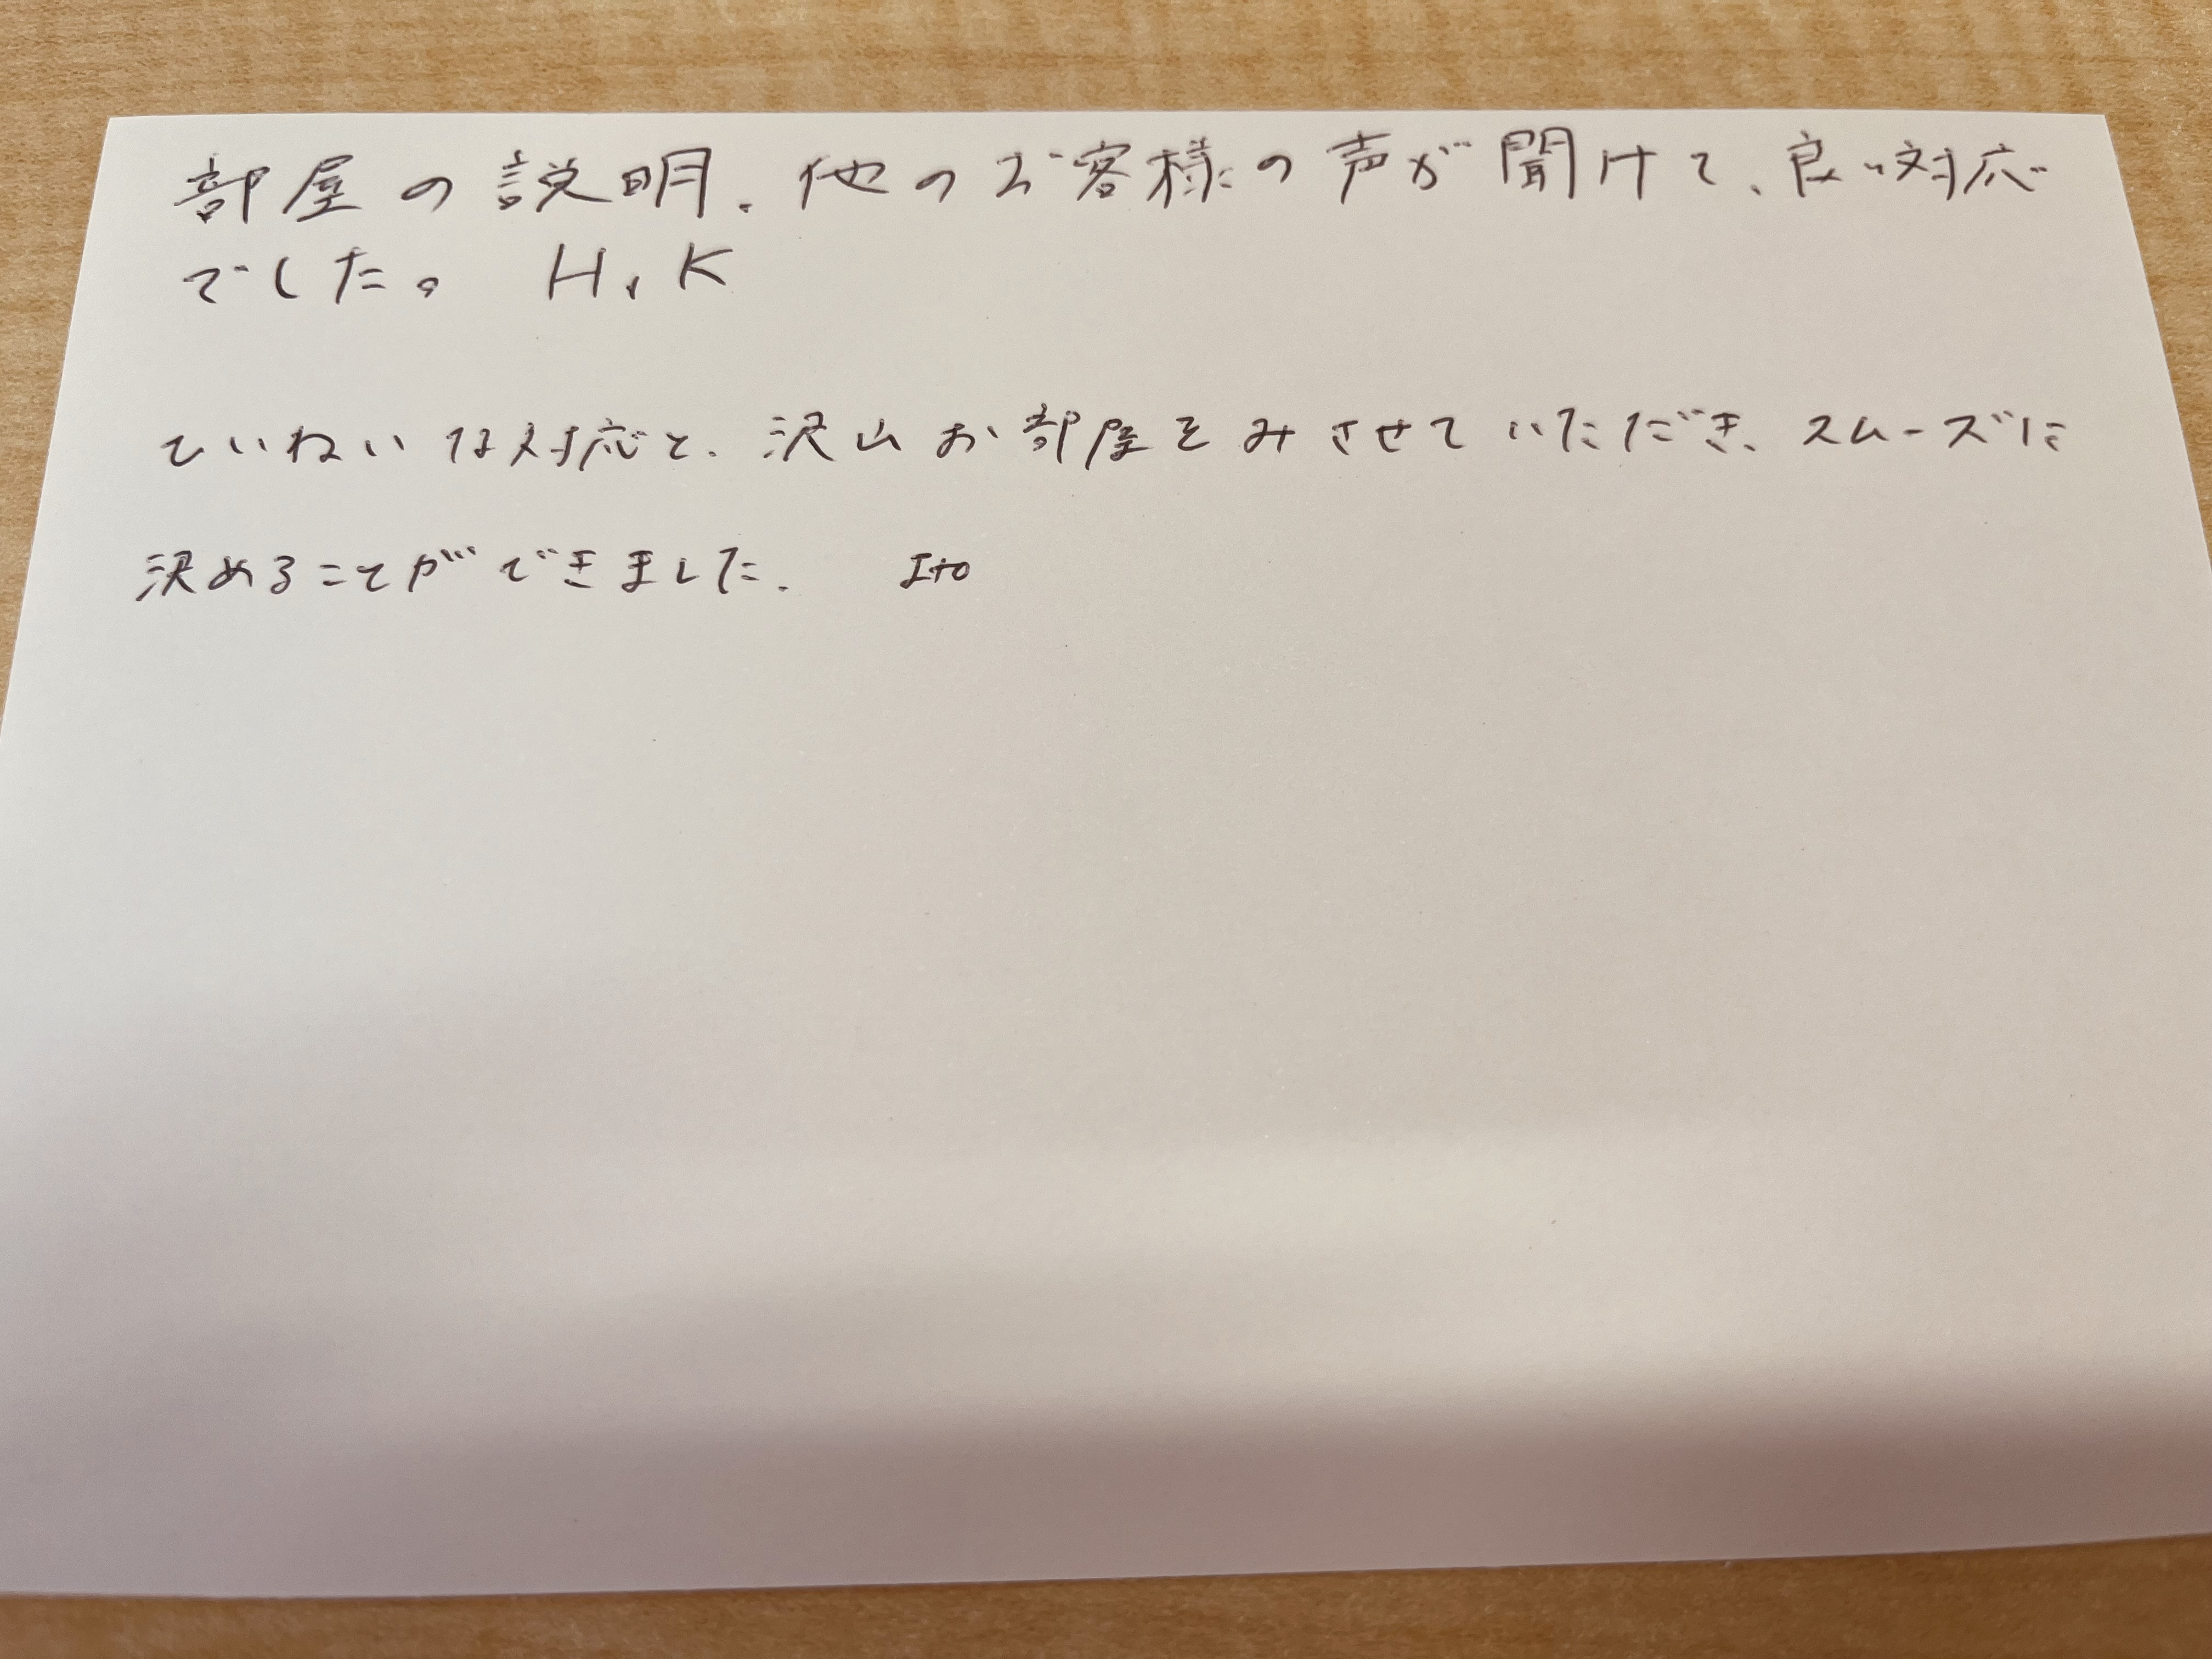 部屋の説明、他のお客様の声が聞けて、良い対応
でした。 H,K
ていねいな対応と、沢山お部屋をみさせていただき、スムーズに
決めることができました。 Ito